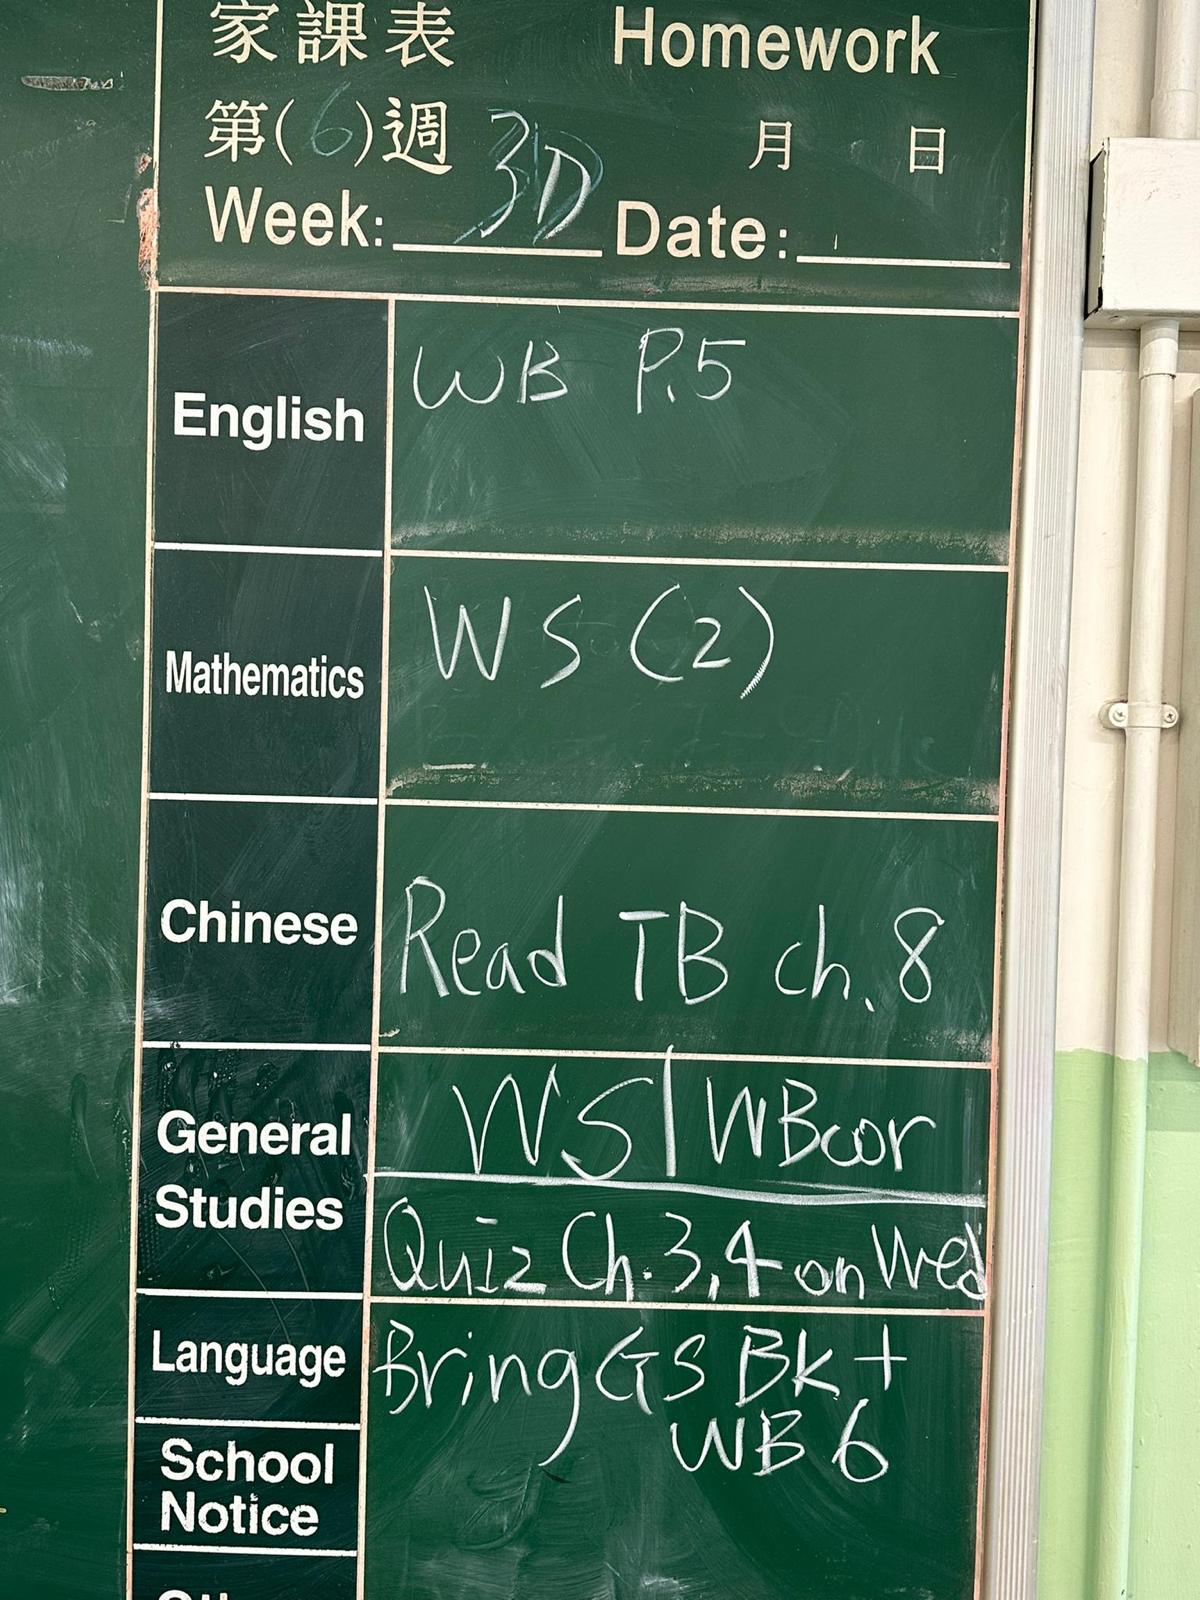 家課表 Homework
第(6)週 月 日
Week: 3D Date:
English WB P.5
Mathematics WS (2)
Chinese Read TB ch. 8
General Studies WS | WBcor
Quiz Ch. 3,4 on Wed
Language Bring GS Bk +
WB 6
School
Notice